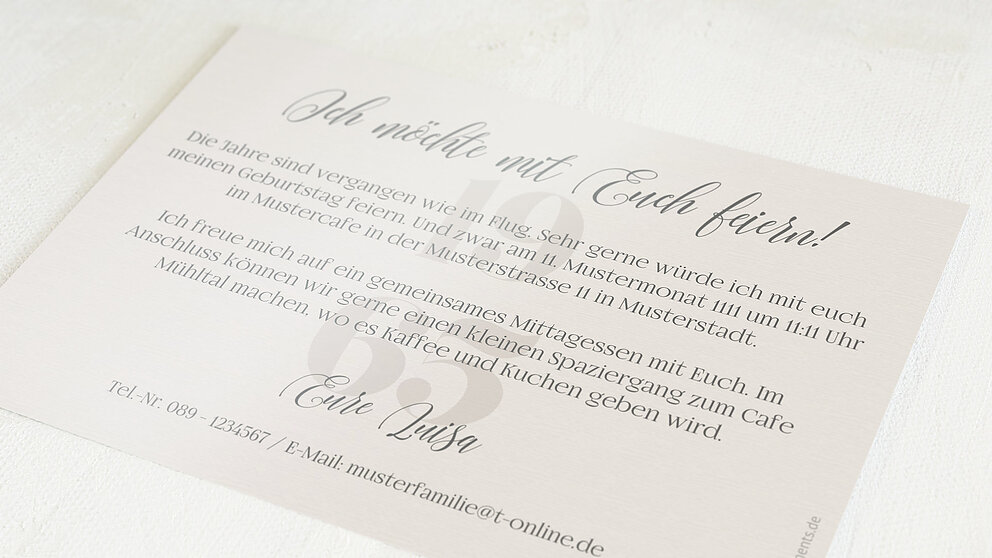 Ich möchte mit Euch feiern!
Die Jahre sind vergangen wie im Flug. Sehr gerne würde ich mit euch
meinen Geburtstag feiern. Und zwar am 11. Mustermonat 1111 um 11:11 Uhr
im Mustercafe in der Musterstrasse 11 in Musterstadt.
Ich freue mich auf ein gemeinsames Mittagessen mit Euch. Im
Anschluss können wir gerne einen kleinen Spaziergang zum Cafe
Mühltal machen, wo es Kaffee und Kuchen geben wird.
19
65
Eure Luisa
Tel.-Nr. 089 - 1234567 / E-Mail: musterfamilie@t-online.de